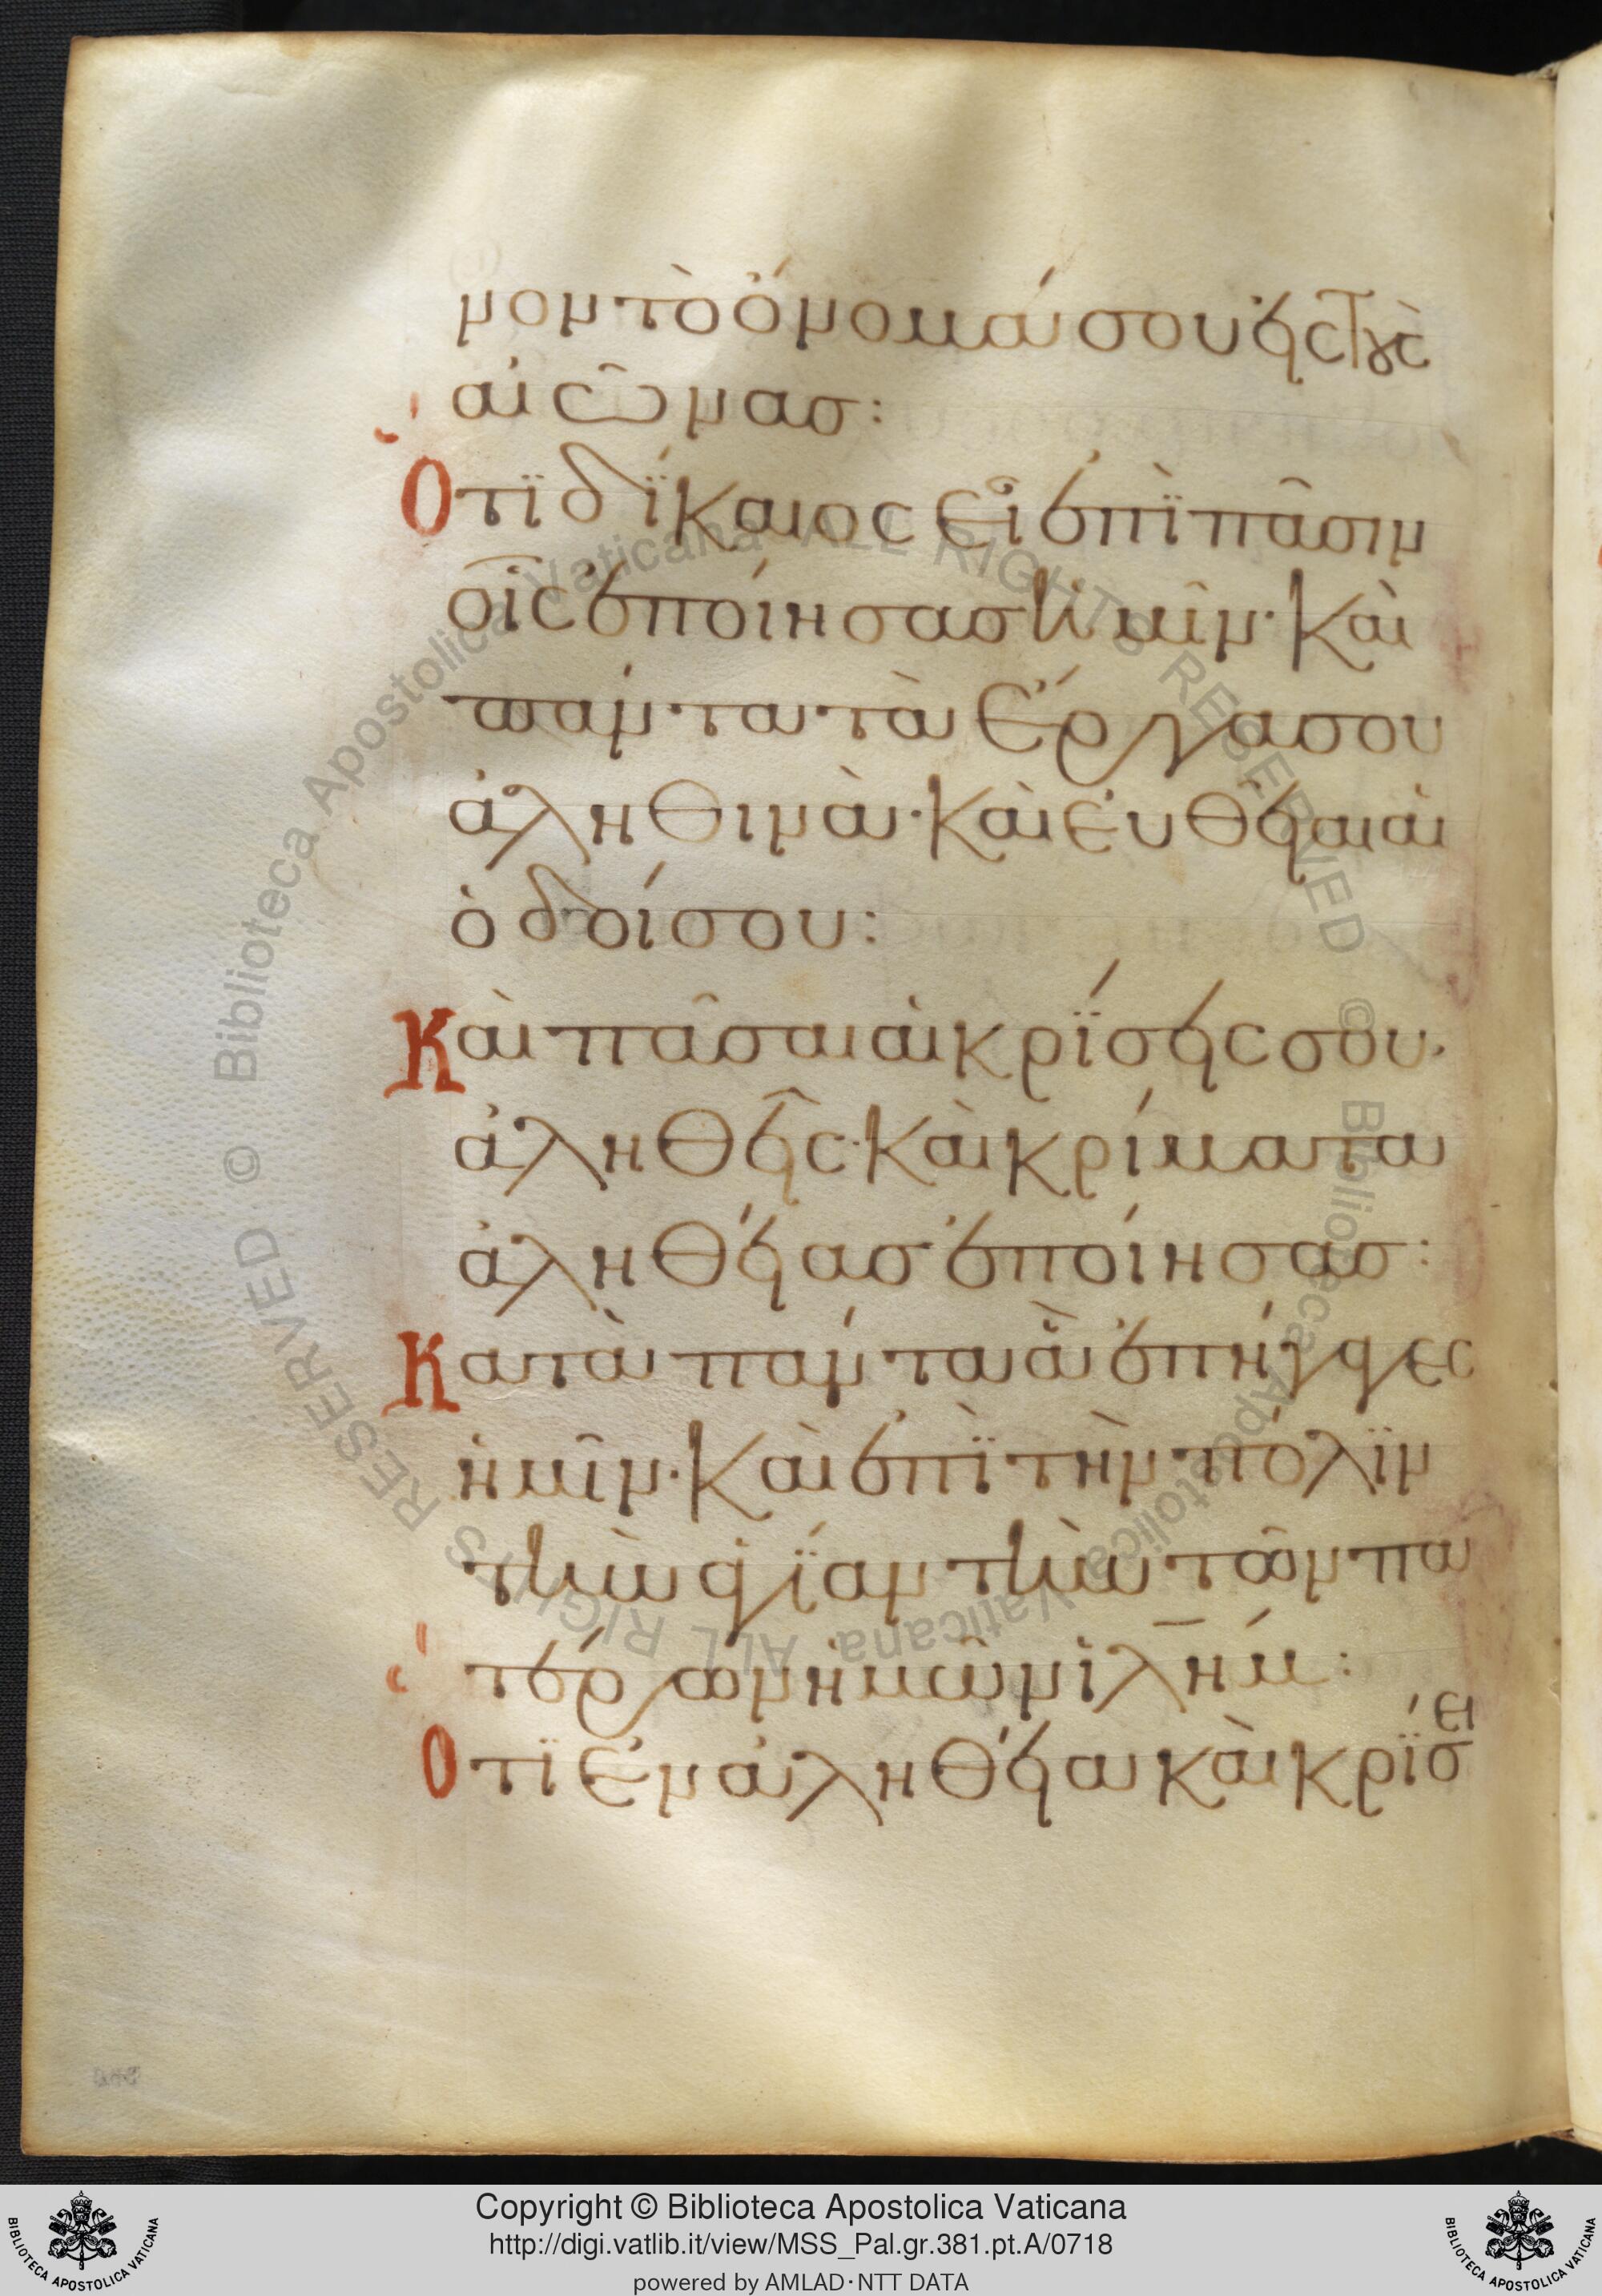 νον τὸ ὄνομά σου εἰς τοὺς
αἰῶνας :
Ὅτϊ δίκαιος εἶ ἐπῒ πᾶσιν
οἷς ἐποίησας ἡμῖν· καὶ
πάντα τὰ ἔργα σου
ἀληθινὰ· καὶ εὐθεῖαι αἱ
ὁδοί σου :
Καὶ πᾶσαι αἱ κρΐσεις σου·
ἀληθεῖς· καὶ κρίματα
ἀληθείας ἐποίησας :
Κατὰ πάντα ἃ ἐπήγαγες
ἡμῖν· καὶ ἐπῒ τὴν πόλϊν
τὴν ἁγΐαν τὴν τῶν πα
τέρων ἡμῶν ἰλήμ :
Ὅτϊ ἐν ἀληθείᾳ καὶ κρΐσει
© Biblioteca Apostolica Vaticana ALL RIGHTS RESERVED © Biblioteca Apostolica Vaticana ALL RIGHTS RESERVED
Copyright © Biblioteca Apostolica Vaticana
http://digi.vatlib.it/view/MSS_Pal.gr.381.pt.A/0718
powered by AMLAD·NTT DATA
BIBLIOTECA APOSTOLICA VATICANA
BIBLIOTECA APOSTOLICA VATICANA